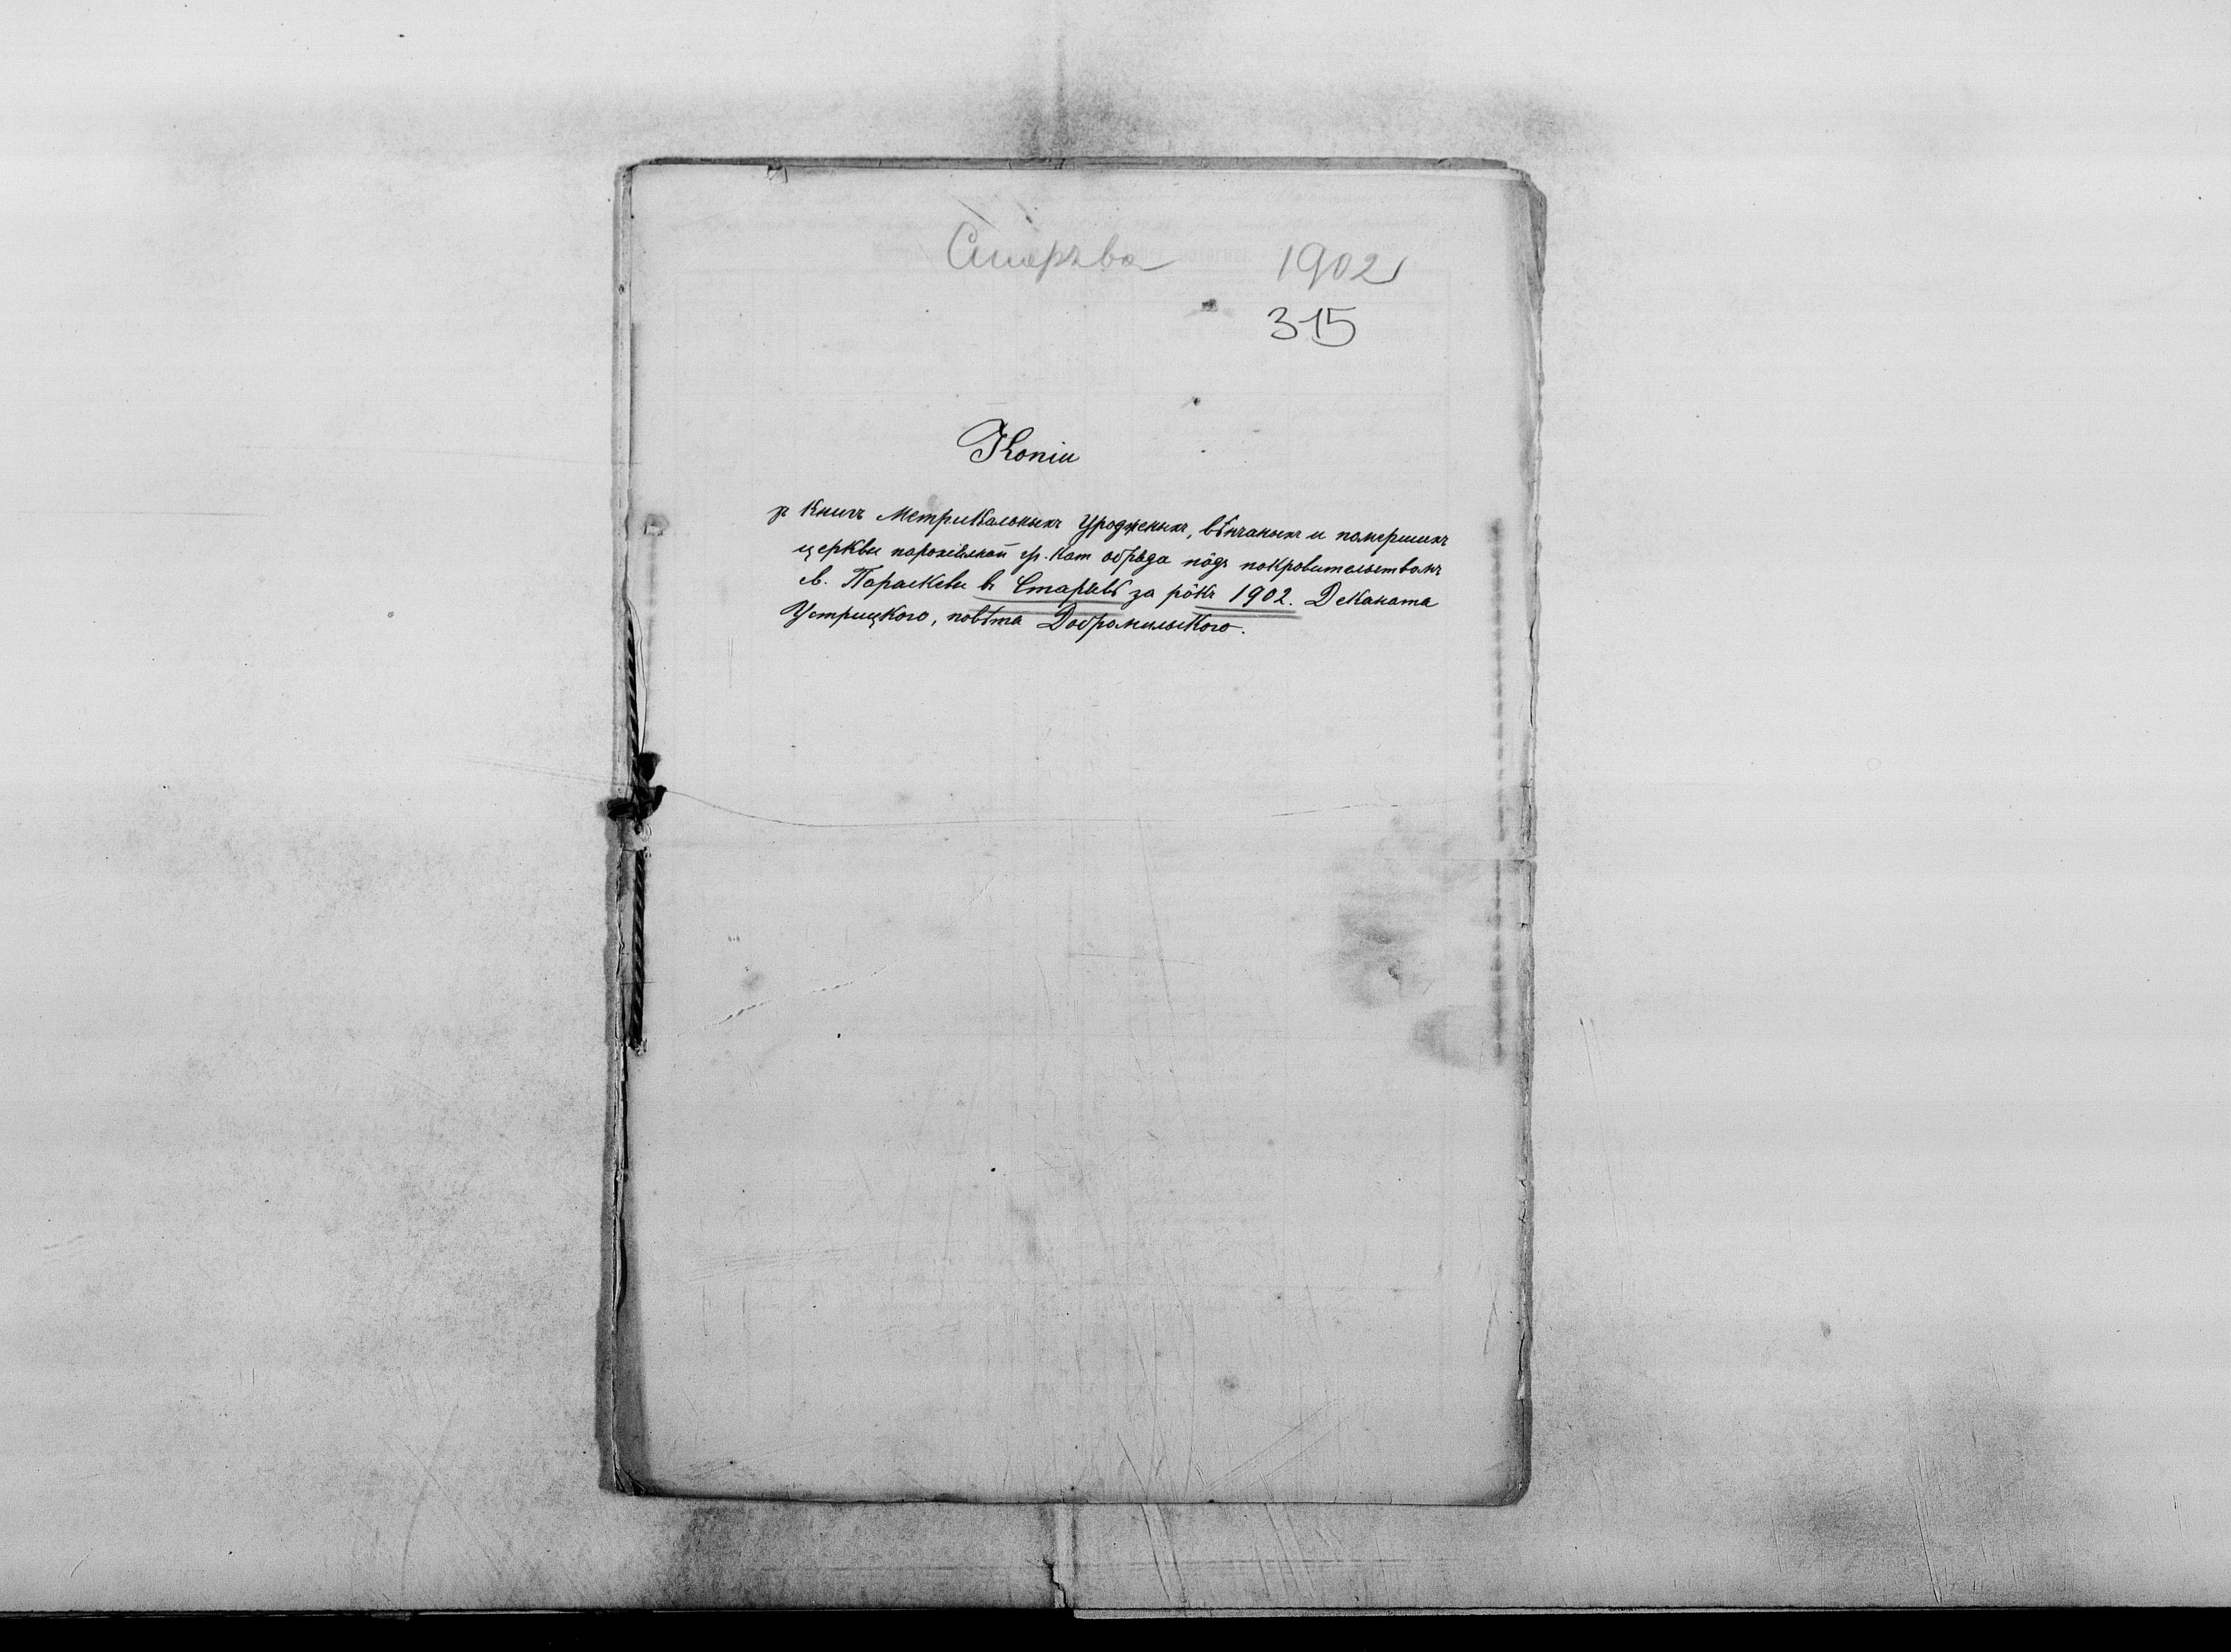 Старява 1902
315
Копіи
зъ Книгъ Метрикальныхъ Уродженыхъ, вѣнчаныхъ и помершихъ
церкви парохіяльной гр. кат обряда пôдъ покровительствомъ
св. Параскеви въ Старявѣ за рôкъ 1902. Деканата
Устрицкого, повѣта Добромильского.